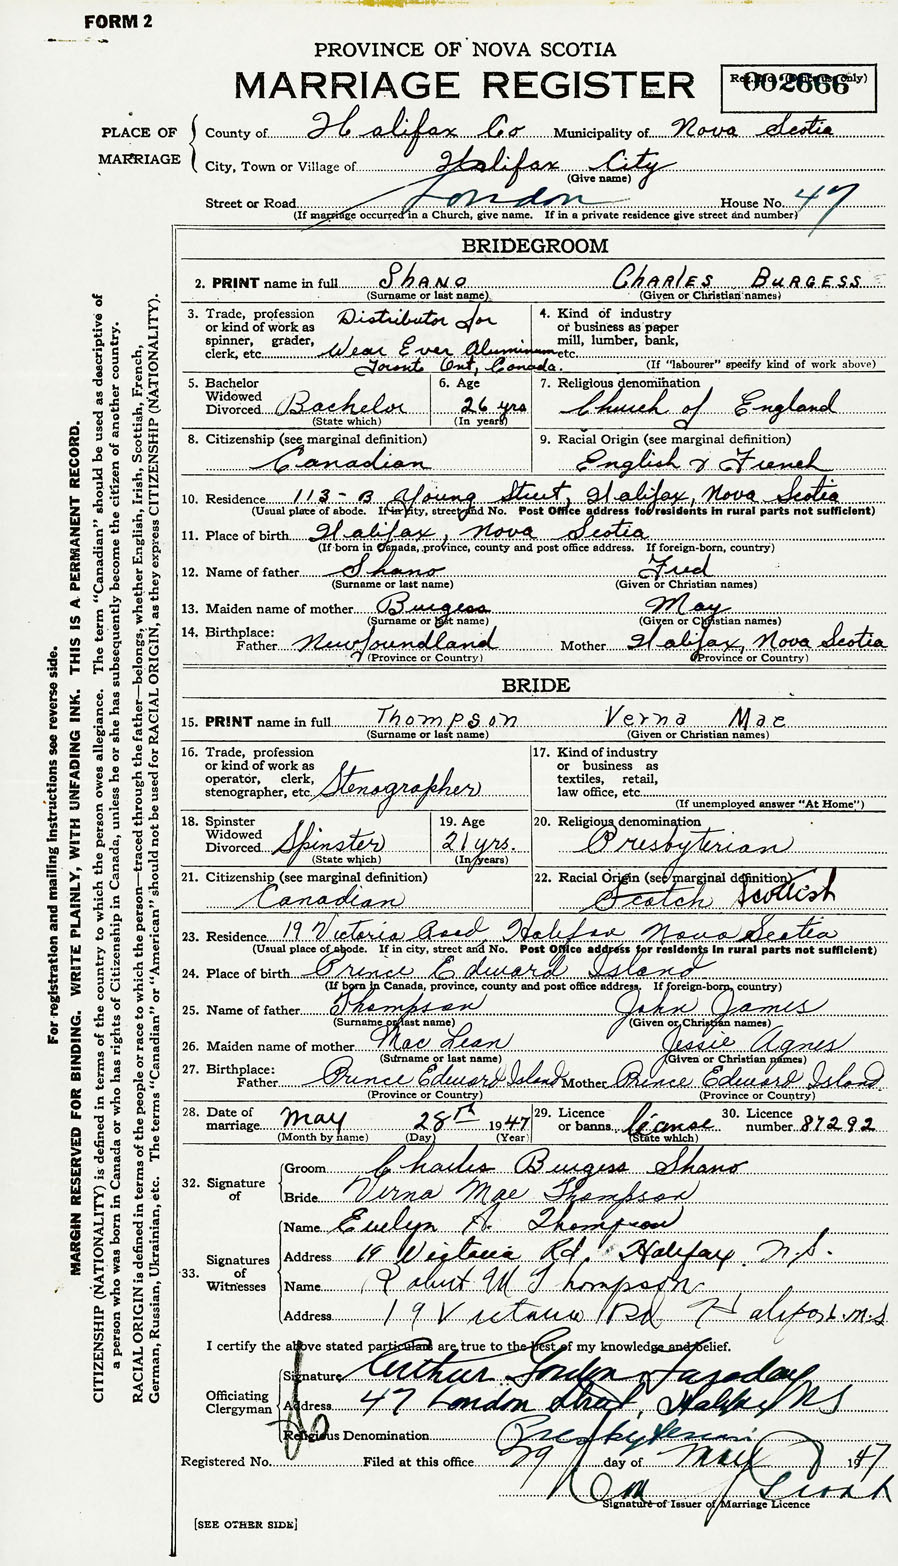 FORM 2
PROVINCE OF NOVA SCOTIA
MARRIAGE REGISTER
Reg. No. (Office use only)
002666
PLACE OF MARRIAGE
County of Halifax Co Municipality of Nova Scotia
City, Town or Village of Halifax City
(Give name)
Street or Road London House No. 47
(If marriage occurred in a Church, give name. If in a private residence give street and number)
BRIDEGROOM
2. PRINT name in full SHANO CHARLES BURGESS
(Surname or last name) (Given or Christian names)
3. Trade, profession or kind of work as spinner, grader, clerk, etc. Distributor for Wear Ever Aluminum Toronto Ont, Canada.
4. Kind of industry or business as paper mill, lumber, bank, etc.
(If "labourer" specify kind of work above)
5. Bachelor Widowed Divorced Bachelor
(State which)
6. Age 26 yrs
(In years)
7. Religious denomination Church of England
8. Citizenship (see marginal definition) Canadian
9. Racial Origin (see marginal definition) English & French
10. Residence 113-B Young Street, Halifax, Nova Scotia
(Usual place of abode. If in city, street and No. Post Office address for residents in rural parts not sufficient)
11. Place of birth Halifax, Nova Scotia
(If born in Canada, province, county and post office address. If foreign-born, country)
12. Name of father Shano Fred
(Surname or last name) (Given or Christian names)
13. Maiden name of mother Burgess May
(Surname or last name) (Given or Christian names)
14. Birthplace: Father Newfoundland Mother Halifax, Nova Scotia
(Province or Country) (Province or Country)
BRIDE
15. PRINT name in full Thompson Verna Mae
(Surname or last name) (Given or Christian names)
16. Trade, profession or kind of work as operator, clerk, stenographer, etc. Stenographer
17. Kind of industry or business as textiles, retail, law office, etc.
(If unemployed answer "At Home")
18. Spinster Widowed Divorced Spinster
(State which)
19. Age 21 yrs.
(In years)
20. Religious denomination Presbyterian
21. Citizenship (see marginal definition) Canadian
22. Racial Origin (see marginal definition) Scotch Scottish
23. Residence 19 Victoria Road, Halifax Nova Scotia
(Usual place of abode. If in city, street and No. Post Office address for residents in rural parts not sufficient)
24. Place of birth Prince Edward Island
(If born in Canada, province, county and post office address. If foreign-born, country)
25. Name of father Thompson John James
(Surname or last name) (Given or Christian names)
26. Maiden name of mother MacLean Jessie Agnes
(Surname or last name) (Given or Christian names)
27. Birthplace: Father Prince Edward Island Mother Prince Edward Island
(Province or Country) (Province or Country)
28. Date of marriage May 28th 1947
(Month by name) (Day) (Year)
29. Licence or banns license
(State which)
30. Licence number 87292
32. Signature of
Groom Charles Burgess Shano
Bride Verna Mae Thompson
33. Signatures of Witnesses
Name Evelyn A. Thompson
Address 19 Victoria Rd. Halifax N.S.
Name Robert M Thompson
Address 19 Victoria Rd Halifax N.S
I certify the above stated particulars are true to the best of my knowledge and belief.
Officiating Clergyman
Signature Arthur Gordon Faraday
Address 47 London Street, Halifax NS
Religious Denomination Presbyterian
Registered No. Filed at this office 29 day of May 1947
Signature of Issuer of Marriage Licence
[SEE OTHER SIDE]
For registration and mailing instructions see reverse side.
MARGIN RESERVED FOR BINDING. WRITE PLAINLY, WITH UNFADING INK. THIS IS A PERMANENT RECORD.
CITIZENSHIP (NATIONALITY) is defined in terms of the country to which the person owes allegiance. The term "Canadian" should be used as descriptive of
a person who was born in Canada or who has rights of Citizenship in Canada, unless he or she has subsequently become the citizen of another country.
RACIAL ORIGIN is defined in terms of the people or race to which the person—traced through the father—belongs, whether English, Irish, Scottish, French,
German, Russian, Ukrainian, etc. The terms "Canadian" or "American" should not be used for RACIAL ORIGIN, as they express CITIZENSHIP (NATIONALITY).